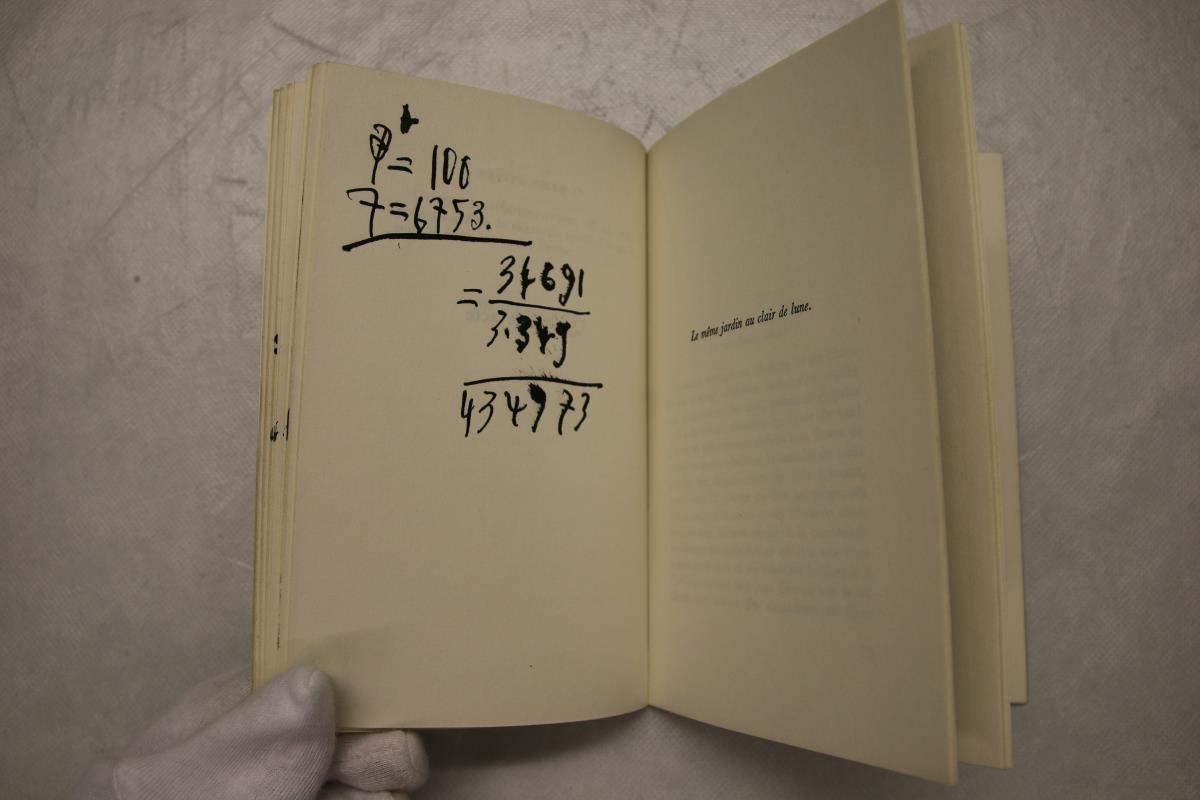 = 100
7 = 6753.
= 34691
3.349
434973
Le même jardin au clair de lune.